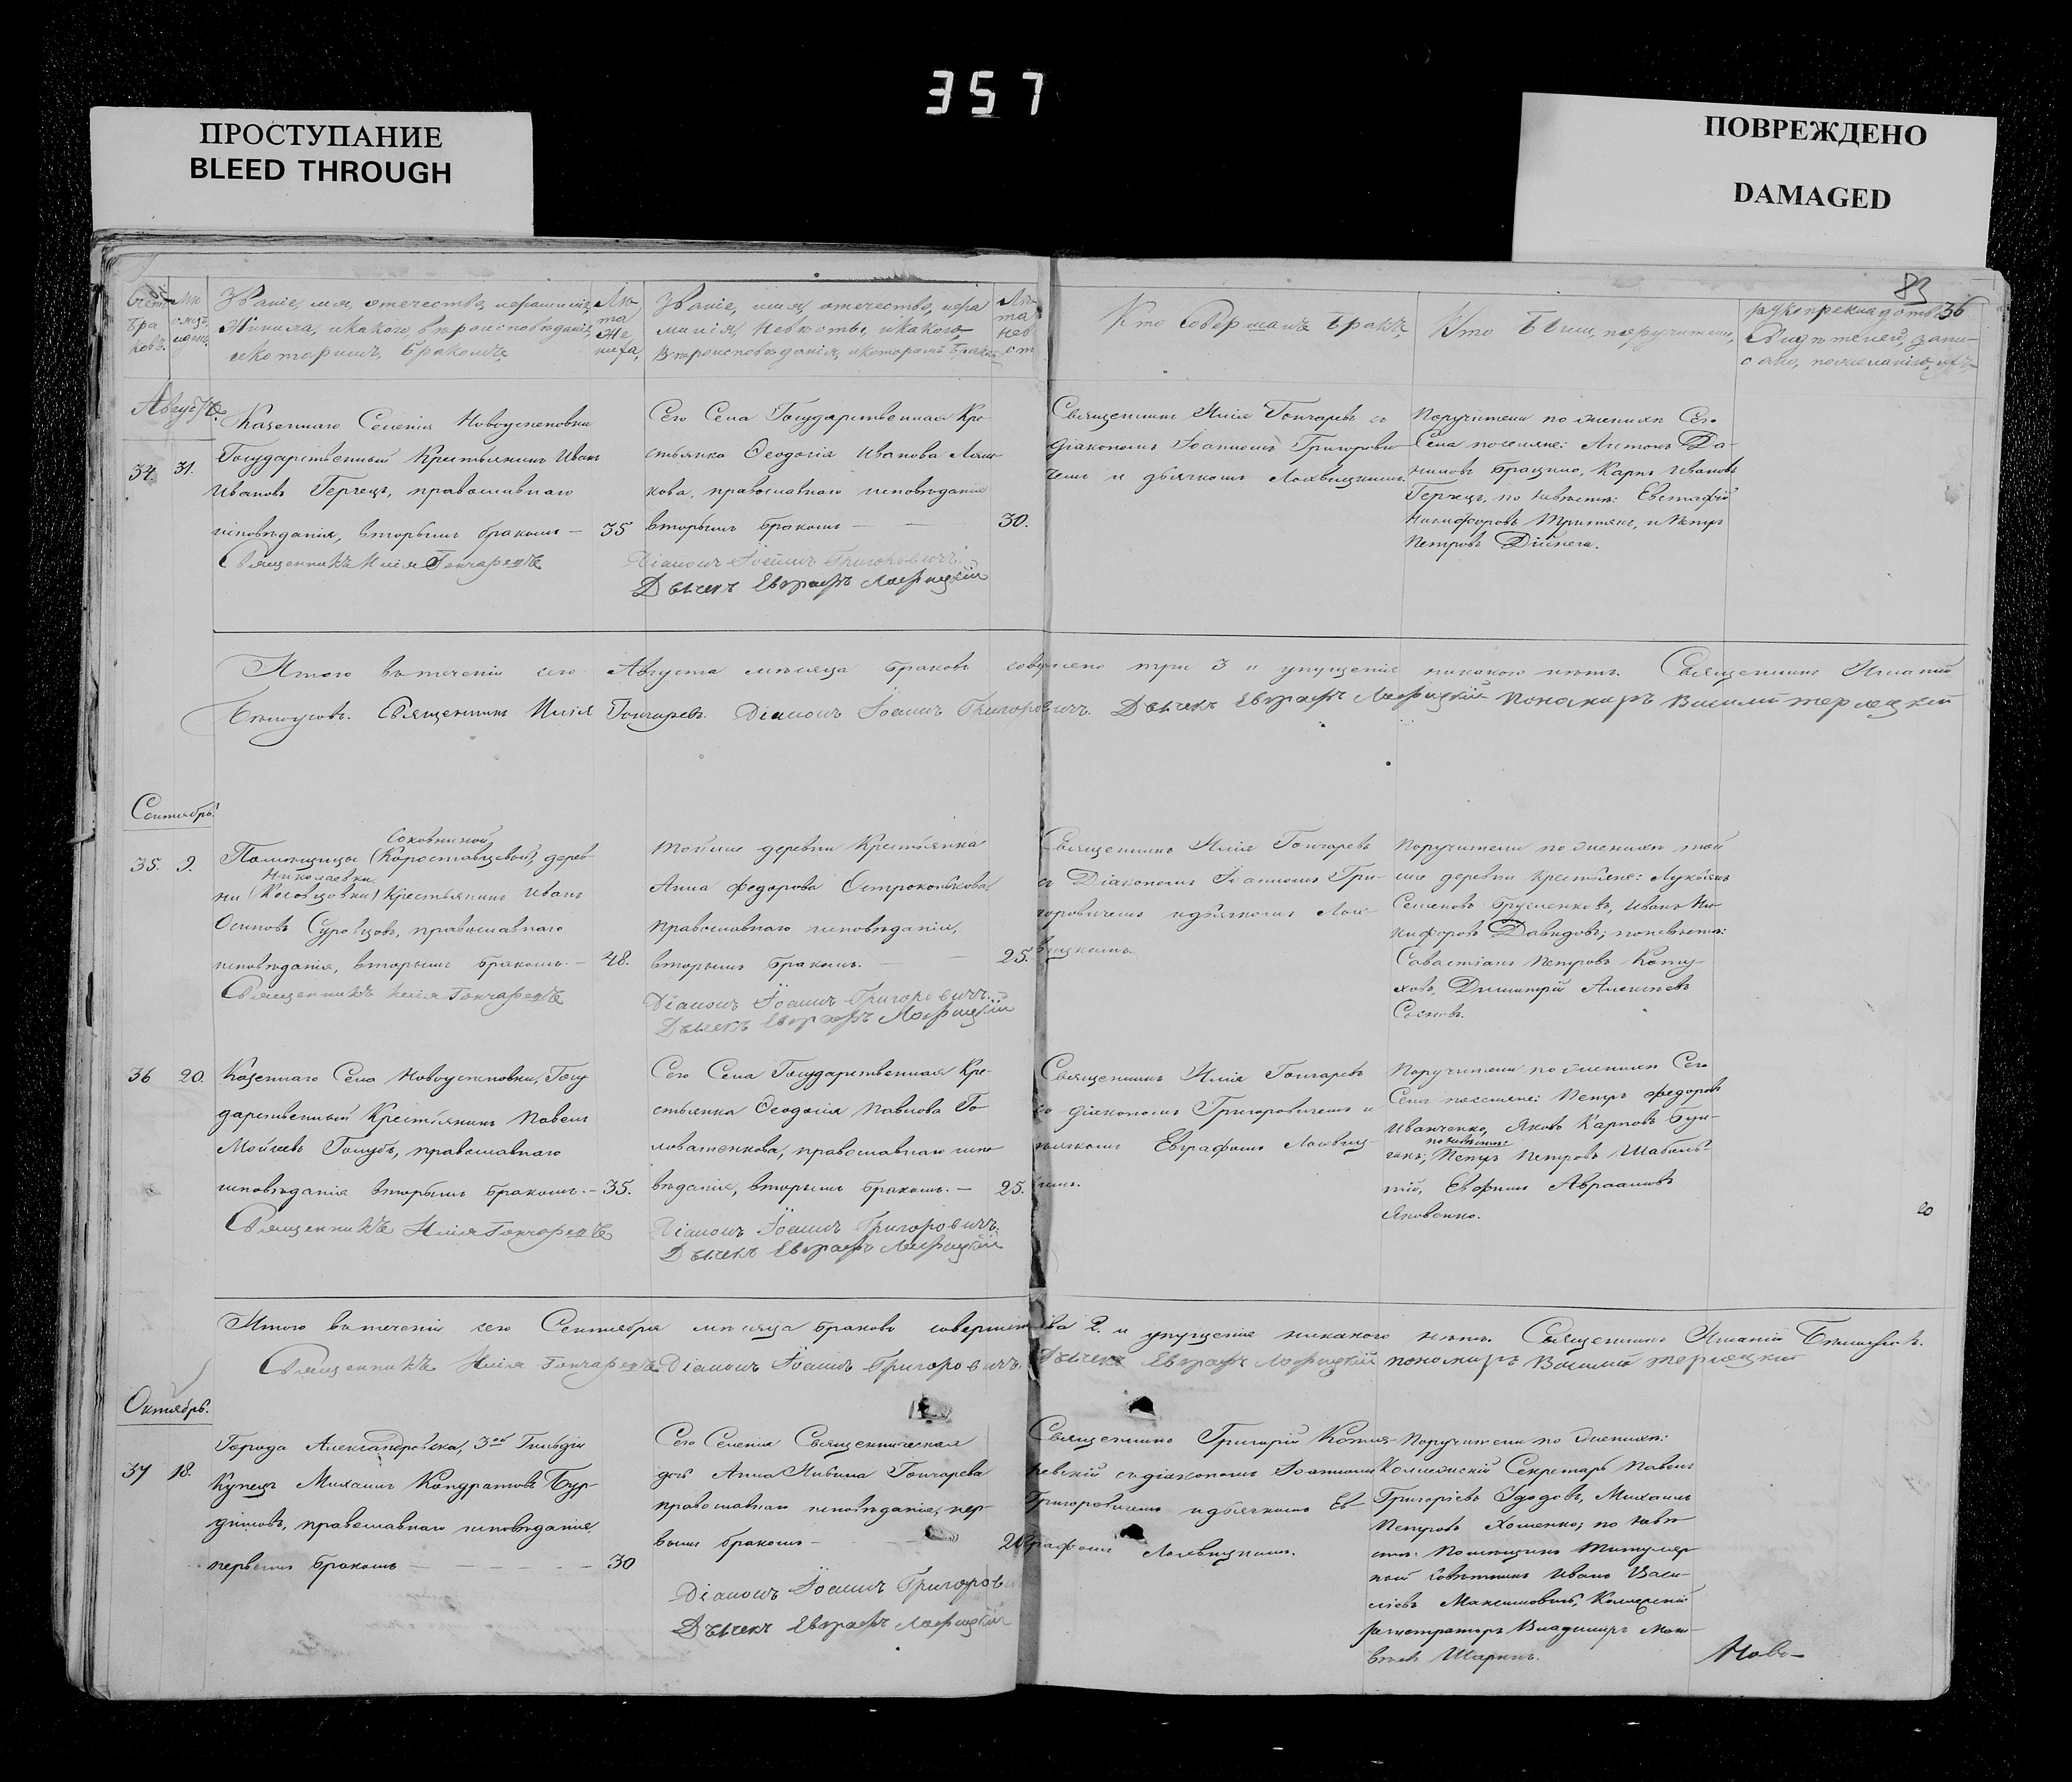 357
ПРОСТУПАНИЕ
BLEED THROUGH
ПОВРЕЖДЕНО
DAMAGED
83
36
Счетъ браковъ.
Мѣсяцъ и день.
Званіе, имя, отечество, фамилія
жениха, и какого вѣроисповѣданія,
и которымъ бракомъ
Лѣта жениха,
Званіе, имя, отечество, фамилія, невѣсты, и какого
вѣроисповѣданія, и которымъ бракомъ
Лѣта невѣсты
Кто совершалъ бракъ,
Кто были поручители,
Августъ.
34. 31.
Казеннаго Селенія Новоуспеновки
Государственный Крестьянинъ Иванъ
Ивановъ Герчецъ, православнаго
исповѣданія, вторымъ бракомъ — 35
Священникъ Илія Гончаревъ
Сего Села Государственная Кре-
стьянка Ѳеодосія Иванова
православнаго исповѣданія
вторымъ бракомъ — 30.
Діаконъ Іоаннъ Григоровичъ.
Дьячекъ Евграфъ Лохвицкій
Священникъ Илія Гончаревъ съ
діакономъ Іоанномъ Григорови-
чемъ и дьячкомъ Лохвицкимъ.
Поручители по женихѣ Сего
Села поселяне: Антонъ Да-
ниловъ Брацило, Карпъ Ивановъ
Герчецъ, по невѣстѣ: Евстафій
Никифоровъ и Петръ
Петровъ Дійнега.
Итого въ теченіи сего Августа мѣсяца браковъ совершено три 3 и упущенія никакого нѣтъ. Священникъ Игнатій
Бѣлоусовъ. Священникъ Илія Гончаревъ. Діаконъ Іоаннъ Григоровичъ. Дьячекъ Евграфъ Лохвицкій Пономарь Василій Терлецкій
Сентябрь.
35. 9.
Соковниной
Помѣщицы (Коростовцевой), дерев-
Николаевки
ни (Косовцовки) Крестьянинъ Иванъ
Осиповъ Суровцовъ, православнаго
исповѣданія, вторымъ бракомъ. — 48.
Священникъ Илія Гончаревъ
Той же деревни Крестьянка
Анна Федорова
православнаго исповѣданія,
вторымъ бракомъ. — 25.
Діаконъ Іоаннъ Григоровичъ.
Дьячекъ Евграфъ Лохвицкій
Священникъ Илія Гончаревъ
съ Діакономъ Іоанномъ Гри-
горовичемъ и дьячкомъ Лох-
вицкимъ.
Поручители по женихѣ той
же деревни крестьяне: Лукьянъ
Семеновъ Иванъ Ни-
кифоровъ Давидовъ; по невѣстѣ:
Савастіанъ Петровъ
Димитрій Алексѣевъ
Сосновъ.
36 20.
Казеннаго Села Новоуспеновки, Госу
дарственный Крестьянинъ Павелъ
Мойсеевъ Голубъ, православнаго
исповѣданія вторымъ бракомъ. — 35.
Священникъ Илія Гончаревъ
Сего Села Государственная Кре-
стьянка Ѳеодосія Павлова Го-
ловатенкова, православнаго испо
вѣданія, вторымъ бракомъ. — 25.
Діаконъ Іоаннъ Григоровичъ.
Дьячекъ Евграфъ Лохвицкій
Священникъ Илія Гончаревъ
со діакономъ Григоровичемъ и
дьячкомъ Евграфомъ Лохвиц-
кимъ.
Поручители по женихѣ Сего
Села поселяне: Петръ Федоровъ
Иванченко, Яковъ Карповъ
по невѣстѣ:
Петръ Петровъ
Евфимъ Авраамовъ
Яковенко.
20
Итого въ теченіи сего Сентября мѣсяца браковъ совершено два 2. и упущенія никакого нѣтъ. Священникъ Игнатій Бѣлоусовъ.
Священникъ Илія Гончаревъ Діаконъ Іоаннъ Григоровичъ. Дьячекъ Евграфъ Лохвицкій пономарь Василій Терлецкій
Октябрь.
37 18.
Города Александровска, 3ой Гильдіи
Купецъ Михаилъ Кондратовъ Бур-
димовъ, православнаго исповѣданія,
первымъ бракомъ — 30
Сего Селенія Священническая
дочь Анна Ильина Гончарева
православнаго исповѣданія, пер-
вымъ бракомъ —
Діаконъ Іоаннъ Григорови
Дьячекъ Евграфъ Лохвицкій
Священникъ Григорій
съ діакономъ Іоанномъ
Григоровичемъ и дьячкомъ Ев-
графомъ Лохвицкимъ.
Поручители по женихѣ:
Коллежскій Секретарь Павелъ
Григорьевъ Удодовъ, Михаилъ
Петровъ Хоменко; по невѣ
стѣ: Помѣщикъ Титуляр
ный совѣтникъ Иванъ Васи-
ліевъ Максимовичъ, Коллежскій
регистраторъ Владиміръ Мат-
вѣевъ Шаринъ.
Ново-